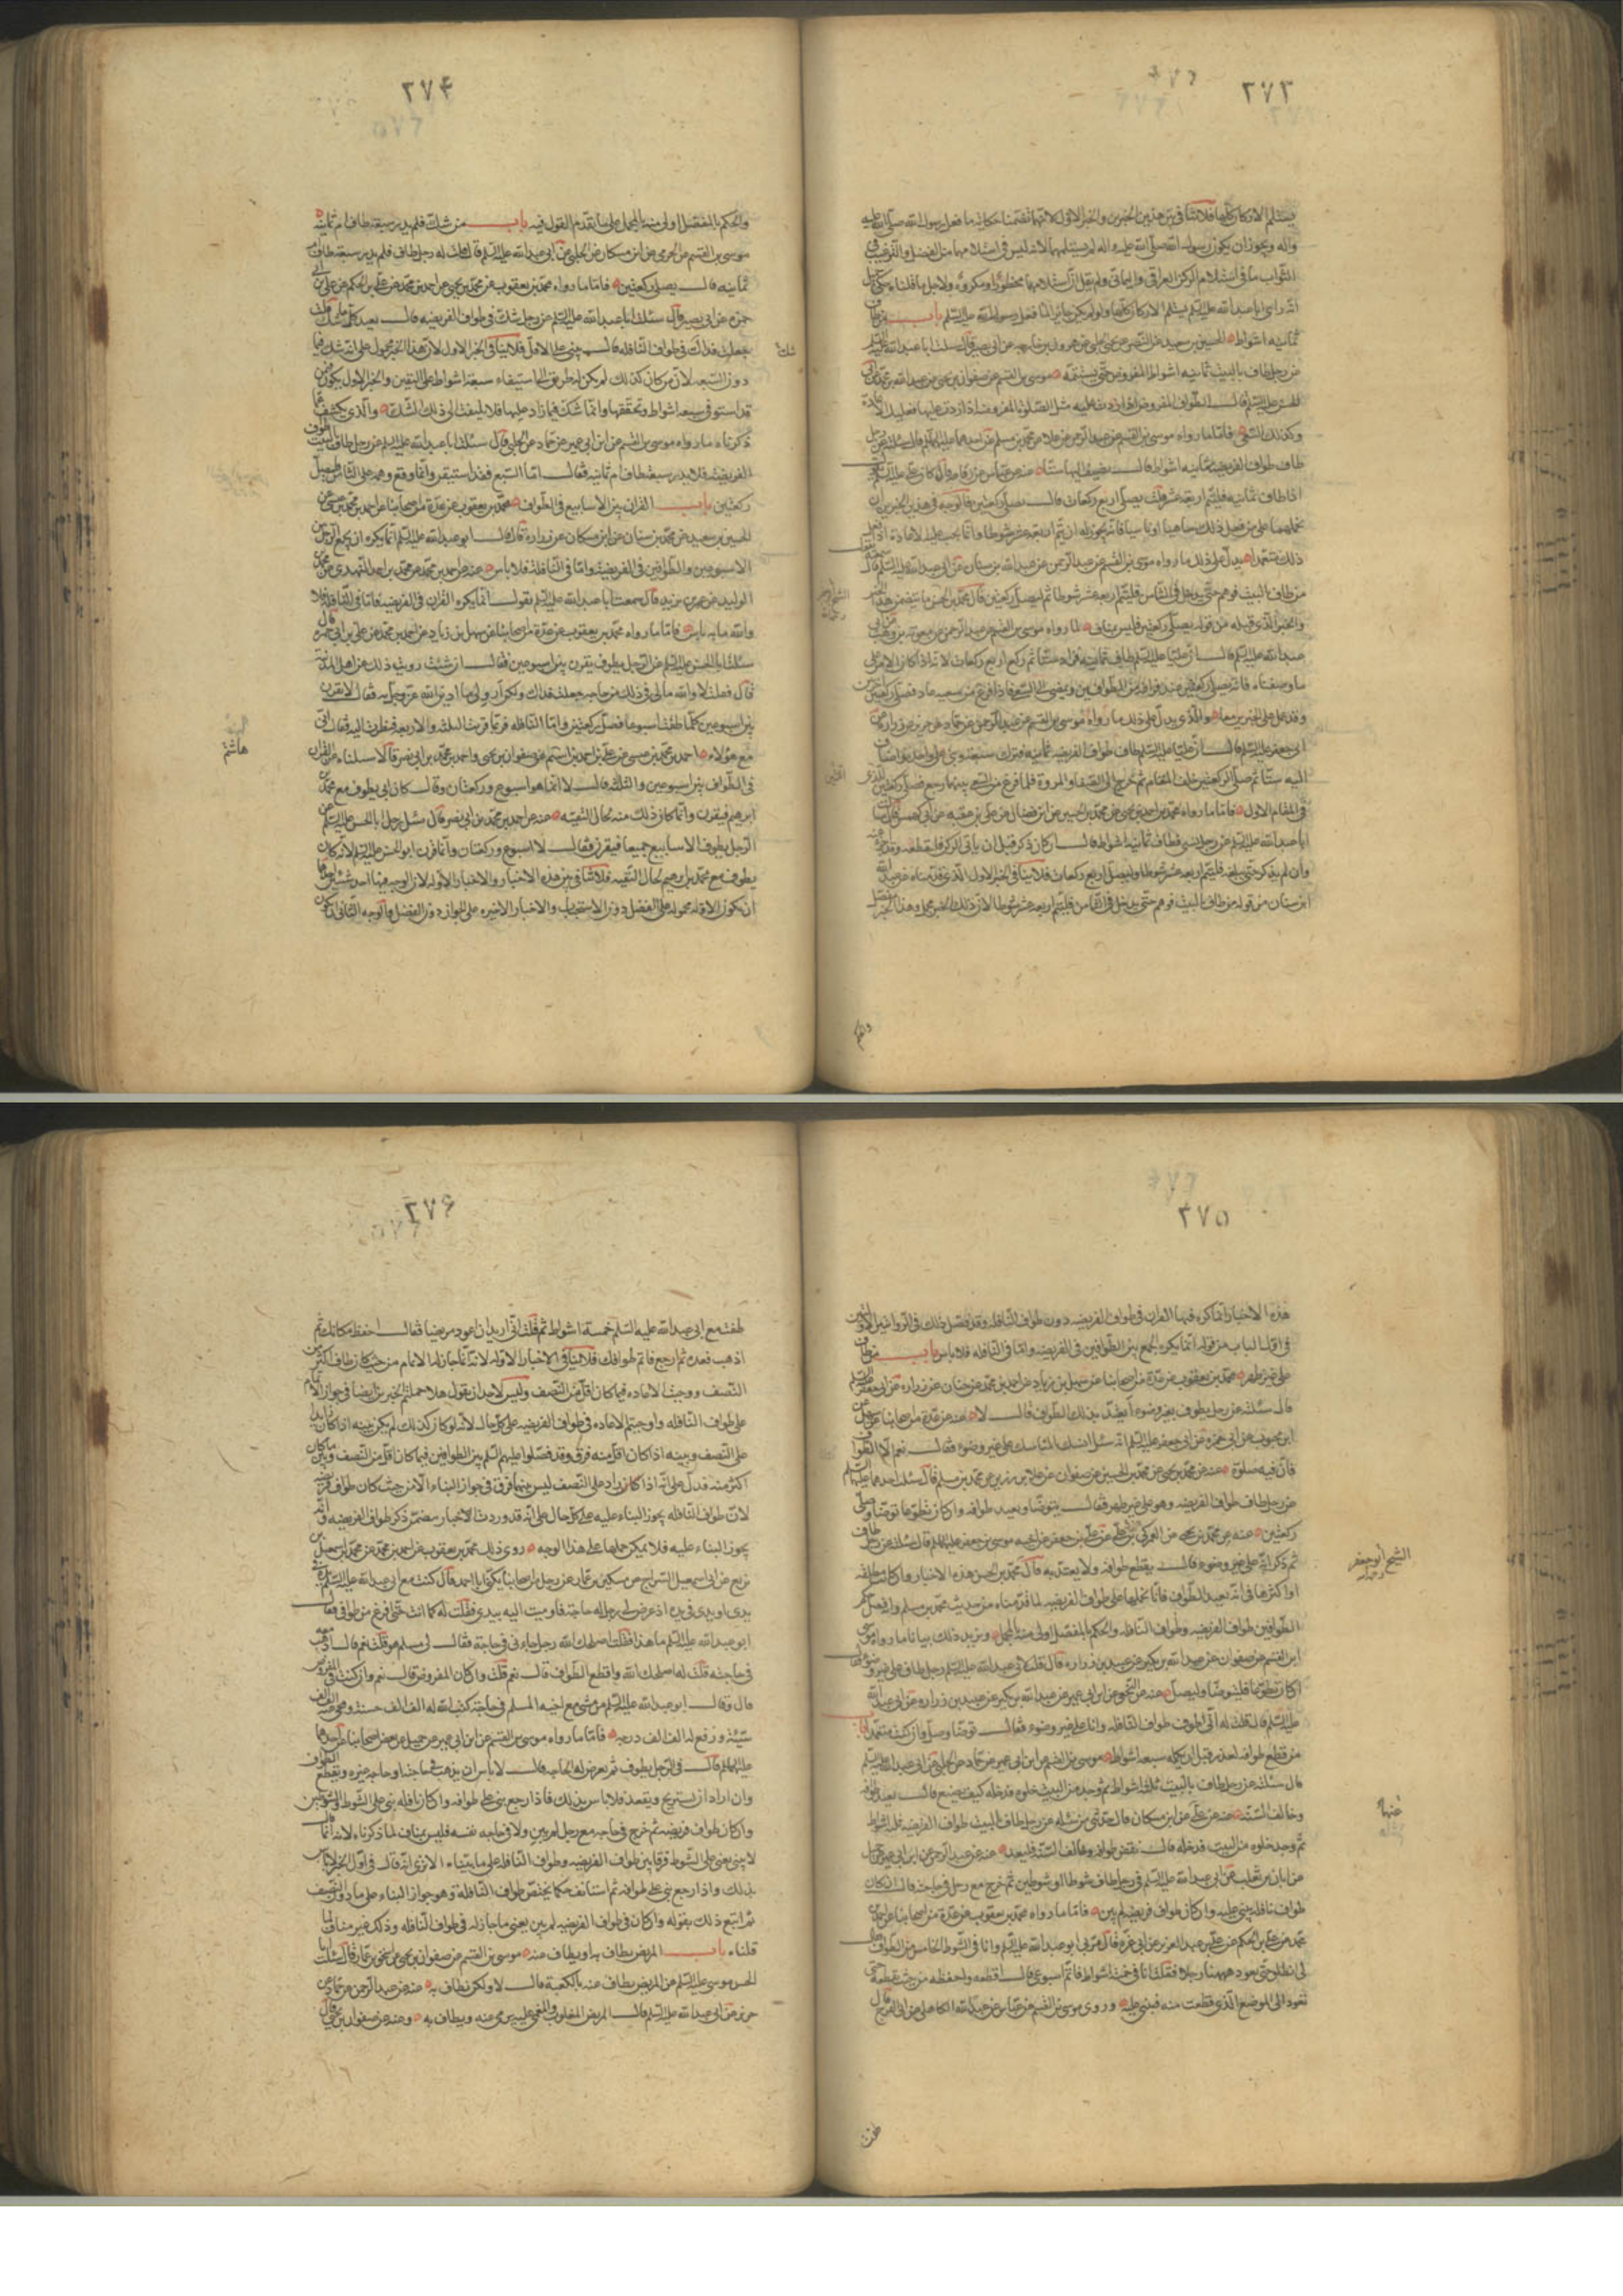 ٢٧٣
يستلم الاركان كلها فلا تنافى بين هذين الخبرين والخبر الاول لانهما تضمنا حكاية ما فعل رسول الله صلى الله عليه
واله ويجوز ان يكون رسول الله صلى الله عليه واله لم يستلمهما لانه ليس فى استلامهما من الفضل والترغيب فى
الثواب ما فى استلام الركن العراقى واليمانى ولم يقل ان استلامهما محظور او مكروه ولاجل ما قلناه حكى جميل
انه راى ابا عبد الله عليه السلم يستلم الاركان كلها ولو لم يكن جايزا لما فعله عليه السلم باب من طاف
ثمانيه اشواط الحسين بن سعيد عن النضر عن يحيى الحلبى عن هرون بن خارجه عن ابى بصير قال سئلت ابا عبد الله عليه السلم
عن رجل طاف بالبيت ثمانيه اشواط المفروض حتى يستتمه موسى بن القسم عن صفوان بن يحيى عن عبد الله بن محمد عن ابى
الحسن عليه السلم قال الطواف المفروض اذا زدت عليه مثل الصلوة المفروضة اذا زدت عليها فعليك الاعادة
وكذلك السعى فاما ما رواه موسى بن القسم عن عبد الرحمن عن علا عن محمد بن مسلم عن احدهما عليهما السلم قال سئلته عن رجل
طاف طواف الفريضه ثمانيه اشواط قال يضيف اليها ستا عنه عن عباس عن رفاعه قال كان على عليه السلم يقول
اذا طاف ثمانيه فليتم اربعه عشر قلت يصلى اربع ركعات قال يصلى ركعتين فالوجه فى هذين الخبرين ان
نحملهما على من فعل ذلك ساهيا او ناسيا فانه يجوز له ان يتم اربعه عشر شوطا وانما يجب عليه الاعادة اذا فعل
ذلك متعمدا يدل على ذلك ما رواه موسى بن القسم عن عبد الرحمن عن عبد الله بن سنان عن ابى عبد الله عليه السلم قال سمعته يقول
من طاف بالبيت فوهم حتى يدخل فى الثامن فليتم اربعه عشر شوطا ثم ليصل ركعتين قال محمد بن الحسن ما يتضمن هذا الخبر
والخبر الذى قبله من قوله يصلى ركعتين فليس بمناف لما رواه موسى بن القسم عن عبد الرحمن عن معويه بن وهب عن ابى
عبد الله عليه السلم قال ان عليا عليه السلم طاف ثمانيه فزاد ستا ثم ركع اربع ركعات لانه اذا كان الامر على
ما وصفناه فانه يصلى ركعتين عند فراغه من الطوافين ويمضى الى السعى فاذا فرغ من سعيه عاد فصلى ركعتين
وقد عمل على الخبرين معا والذى يدل على ذلك ما رواه موسى بن القسم عن عبد الرحمن عن حماد عن حريز عن زراره عن
ابى جعفر عليه السلم قال ان عليا عليه السلم طاف طواف الفريضه ثمانيه فترك سبعة وبنى على واحد واضاف
اليه ستا ثم صلى الركعتين خلف المقام ثم خرج الى الصفا والمروة فلما فرغ من السعى بينهما رجع فصلى ركعتين الذى ترك
فى المقام الاول فاما ما رواه محمد بن احمد بن يحيى عن محمد بن الحسين عن ابن فضال عن على بن عقبه عن ابى كهمس قال سئلت
ابا عبد الله عليه السلم عن رجل نسى فطاف ثمانيه اشواط قال ان كان ذكر قبل ان ياتى الركن فليقطعه وقد اجزا عنه
وان لم يذكر حتى بلغه فليتم اربعه عشر شوطا وليصل اربع ركعات فلا ينافى الخبر الاول الذى قدمناه عن عبد الله
ابن سنان من قوله من طاف بالبيت فوهم حتى يدخل فى الثامن فليتم اربعه عشر شوطا لان ذلك الخبر مجمل وهذا الخبر مفصل
والحكم
٢٧۴
والحكم بالمفصل اولى منه بالمجمل على ما تقدم القول فيه باب من شك فلم يدر سبعة طاف ام ثمانيه
موسى بن القسم عن الجرمى عن ابن مسكان عن الحلبى عن ابى عبد الله عليه السلم قال قلت له رجل طاف فلم يدر سبعة طاف ام
ثمانيه قال يصلى ركعتين فاما ما رواه محمد بن يعقوب عن محمد بن يحيى عن احمد بن محمد عن على بن الحكم عن على بن ابى
حمزه عن ابى بصير قال سئلت ابا عبد الله عليه السلم عن رجل شك فى طواف الفريضه قال يعيد كلما شك قلت
جعلت فداك شك فى طواف النافله قال يبنى على الاقل فلا ينافى الخبر الاول لان هذا الخبر محمول على انه شك فيما
شك
دون السبعه لان من كان كذلك لم يكن له طريق الى استيفاء سبعة اشواط على اليقين والخبر الاول يكون من
قد استوفى سبعه اشواط وتحققها وانما شك فيما زاد عليها فلا يلتفت الى ذلك الشك والذى يكشف عما
ذكرناه ما رواه موسى بن القسم عن ابن ابى عمير عن حماد عن الحلبى قال سئلت ابا عبد الله عليه السلم عن رجل طاف بالبيت طواف
الفريضه فلم يدر سبعة طاف ام ثمانيه فقال اما السبع فقد استيقن وانما وقع وهمه على الثامن فليصل
ركعتين باب القران بين الاسابيع فى الطواف محمد بن يعقوب عن عدة من اصحابنا عن احمد بن محمد بن عيسى عن
الحسين بن سعيد عن محمد بن سنان عن ابن مسكان عن زراره قال قال ابو عبد الله عليه السلم انما يكره ان يجمع الرجل بين
الاسبوعين والطوافين فى الفريضة واما فى النافلة فلا باس عنه عن احمد بن محمد عن محمد بن احمد النهدى عن محمد بن
الوليد عن عمر بن يزيد قال سمعت ابا عبد الله عليه السلم يقول انما يكره القران فى الفريضه فاما فى النافلة فلا
والله ما به باس فاما ما رواه محمد بن يعقوب عن عدة من اصحابنا عن سهل بن زياد عن احمد بن محمد عن على بن ابى حمزه قال
سئلت ابا الحسن عليه السلم عن الرجل يطوف يقرن بين اسبوعين فقال ان شئت رويت لك عن اهل المدينة
قال فقلت لا والله مالى فى ذلك من حاجه جعلت فداك ولكن ارو لى ما ادين الله عز وجل به فقال لا تقرن
بين اسبوعين كلما طفت اسبوعا فصل ركعتين واما النافله فربما قرنت الثلثه والاربعه فنظرت اليه فقال انى
مع هؤلاء احمد بن محمد بن عيسى عن على بن احمد بن اشيم عن صفوان بن يحيى واحمد بن محمد بن ابى نصر قالا سئلناه عن القران
هاشم
فى الطواف بين اسبوعين والثلثه قال لا انما هو اسبوع وركعتان وقال كان ابى يطوف مع محمد بن
ابرهيم فيقرن وانما كان ذلك منه لحال التقيه عنه عن احمد بن محمد بن ابى نصر قال سئل رجل ابا الحسن عليه السلم عن
الرجل يطوف الاسابيع جميعا فيقرن فقال لا اسبوع وركعتان وانما قرن ابو الحسن عليه السلم لانه كان
يطوف مع محمد بن ابرهيم لحال التقيه فلا تنافى بين هذه الاخبار والاخبار الاوله لان الوجه فيها احد شيئين احدهما
ان يكون الاوله محموله على الفضل دون الاستحباب والاخبار الاخيره على الجواز دون الفضل والوجه الثانى ان يكون
٢٧۵
هذه الاخبار انما كره فيها القران فى طواف الفريضه دون طواف النافله وقد فصل ذلك فى الروايتين الاولتين
فى اول الباب من قوله انما يكره الجمع بين الطوافين فى الفريضه واما فى النافله فلا باس باب من طاف
على غير طهر محمد بن يعقوب عن عدة من اصحابنا عن سهل بن زياد عن احمد بن محمد عن حنان عن زراره عن ابى جعفر عليه السلم
قال سئلته عن رجل يطوف بغير وضوء ايعتد بذلك الطواف قال لا عنه عن عدة من اصحابنا عن سهل عن
ابن محبوب عن ابى حمزه عن ابى جعفر عليه السلم انه سئل اينسك المناسك على غير وضوء فقال نعم الا الطواف
فان فيه صلوة عنه عن محمد بن يحيى عن محمد بن الحسين عن صفوان عن علا بن رزين عن محمد بن مسلم قال سئلت احدهما عليهما السلم
عن رجل طاف طواف الفريضه وهو على غير طهر فقال يتوضا ويعيد طوافه وان كان تطوعا توضا وصلى
ركعتين عنه عن محمد بن يحيى عن العمركى بن على عن على بن جعفر عن اخيه موسى بن جعفر عليهما السلم قال سئلته عن رجل طاف
ثم ذكر انه على غير وضوء قال يقطع طوافه ولا يعتد به قال محمد بن الحسن هذه الاخبار وان كان مطلقه
الشيخ ابو جعفر رحمه الله
او اكثرها فى انه يعيد الطواف فانا نحملها على طواف الفريضه لما قدمناه من حديث محمد بن مسلم وانه فصل حكم
الطوافين طواف الفريضه وطواف النافله والحكم بالمفصل اولى منه بالمجمل ويزيد ذلك بيانا ما رواه موسى
ابن القسم عن صفوان عن عبد الله بن بكير عن عبيد بن زراره قال قلت لابى عبد الله عليه السلم رجل طاف على غير وضوء فقال
ان كان تطوعا فليتوضا وليصل عنه عن النخعى عن ابن ابى عمير عن عبد الله بن بكير عن عبيد بن زراره عن ابى عبد الله
عليه السلم قال قلت له انى اطوف طواف النافله وانا على غير وضوء فقال توضا وصل وان كنت متعمدا باب
من قطع طوافه لعذر قبل ان يكمله سبعه اشواط موسى بن القسم عن ابن ابى عمير عن حماد عن الحلبى عن ابى عبد الله عليه السلم
قال سئلته عن رجل طاف بالبيت ثلثه اشواط ثم وجد من البيت خلوه فدخله كيف يصنع قال يعيد طوافه
وخالف السنه عنه عن على عن ابن مسكان قال حدثنى من سئله عن رجل طاف بالبيت طواف الفريضه ثلثه اشواط
عنهما
ثم وجد خلوه من البيت فدخله قال نقض طوافه وخالف السنة فليعد عنه عن عبد الرحمن عن ابن ابى عمير عن جميل
عن ابان بن تغلب عن ابى عبد الله عليه السلم فى رجل طاف شوطا او شوطين ثم خرج مع رجل فى حاجته قال ان كان
طواف نافله بنى عليه وان كان طواف فريضه لم يبن فاما ما رواه محمد بن يعقوب عن عدة من اصحابنا عن احمد بن
محمد عن على بن الحكم عن على بن عبد العزيز عن ابى عزه قال مر بى ابو عبد الله عليه السلم وانا فى الشوط الخامس من الطواف فقال
لى انطلق حتى نعود ههنا رجلا فقلت انا فى خمسه اشواط فاتم اسبوعى قال اقطعه واحفظه من حيث تقطعه حتى
تعود الى الموضع الذى قطعت منه فتبنى عليه وروى موسى بن القسم عن عباس عن عبد الله الكاهلى عن ابى الفرج قال
طفت
٢٧۶
طفت مع ابى عبد الله عليه السلم خمسة اشواط ثم قلت انى اريد ان اعود مريضا فقال احفظ مكانك ثم
اذهب فعده ثم ارجع فاتم طوافك فلا ينافى الاخبار الاوله لانه انما جاز له الاتمام من حيث كان طاف اكثر من
النصف ووجب الاعاده فيما كان اقل من النصف وليس لاحد ان يقول هلا حملتم الخبرين ايضا فى جواز الاتمام
على طواف النافله واوجبتم الاعاده فى طواف الفريضه على كل حال لانه لو كان كذلك لم يكن بينه اذا كان زايدا
على النصف وبينه اذا كان اقل منه فرق وقد فصلوا عليهم السلم بين الطوافين فيما كان اقل من النصف وبين ما كان
اكثر منه فدل على انه اذا كان زاد على النصف ليس بينهما فرق فى جواز البناء الا من حيث كان طواف فريضه
لان طواف النافله يجوز البناء عليه على كل حال على انه قد وردت الاخبار متضمن ذكر طواف الفريضه وانه
يجوز البناء عليه فلا يمكن حملها على هذا الوجه روى ذلك محمد بن يعقوب عن احمد بن محمد عن محمد بن اسمعيل بن
بزيع عن ابى اسمعيل السراج عن سكين بن عمار عن رجل من اصحابنا يكنى ابا احمد قال كنت مع ابى عبد الله عليه السلم فى الطواف
يدى او يدى فى يده اذ عرض لى رجل له حاجته فاوميت اليه بيدى فقلت له كما انت حتى افرغ من طوافى فقال
ابو عبد الله عليه السلم ما هذا فقلت اصلحك الله رجل جاءنى فى حاجة فقال لى مسلم هو قلت نعم قال اذهب معه
فى حاجته قلت له اصلحك الله واقطع الطواف قال نعم قلت وان كان المفروض قال نعم وان كنت فى المفروض
قال وقال ابو عبد الله عليه السلم من مشى مع اخيه المسلم فى حاجته كتب الله له الف الف حسنة ومحى عنه الف الف
سيئة ورفع له الف الف درجه فاما ما رواه موسى بن القسم عن ابن ابى عمير عن جميل عن بعض اصحابنا عن احدهما
عليهما السلم قال فى الرجل يطوف ثم تعرض له الحاجه قال لا باس ان يذهب فى حاجته او حاجه غيره ويقطع الطواف
وان اراد ان يستريح ويقعد فلا باس بذلك فاذا رجع بنى على طوافه وان كان نافله بنى على الشوط والشوطين
وان كان طواف فريضه ثم خرج فى حاجه مع رجل لم يبن ولا فى حاجه نفسه فليس بمناف لما ذكرناه لانه انما قال
لا يبنى يعنى على الشوط فرقا بين طواف الفريضه وطواف النافله على ما بيناه الا ترى انه قال فى اول الخبر لا باس
بذلك واذا رجع بنى على طوافه ثم استانف حكما يختص طواف النافلة وهو جواز البناء على ما دون النصف
ثم اتبع ذلك بقوله وان كان فى طواف الفريضه لم يبن يعنى ما جاز له فى طواف النافله وذلك غير مناف لما
قلناه باب المريض يطاف به او يطاف عنه موسى بن القسم عن صفوان بن يحيى عن اسحق بن عمار قال سئلت ابا
الحسن موسى عليه السلم عن المريض يطاف عنه بالكعبة قال لا ولكن يطاف به عنه عن عبد الرحمن عن حماد عن
حريز عن ابى عبد الله عليه السلم قال المريض المغلوب والمغمى عليه يرمى عنه ويطاف به وعنه عن صفوان بن يحيى قال